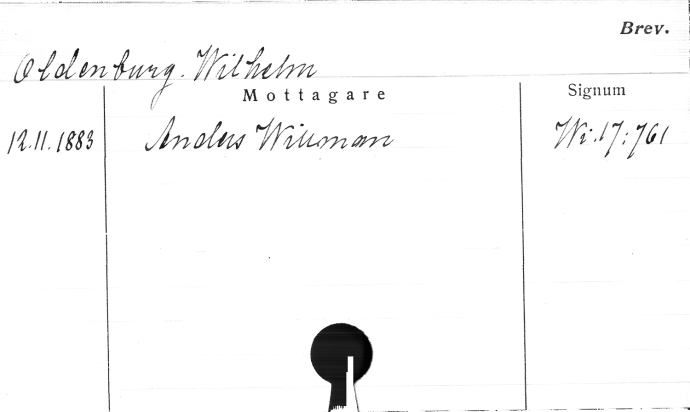 Brev.
Oldenburg. Wilhelm
Mottagare
Signum
12.11.1883 Anders Willman Wi.17:761